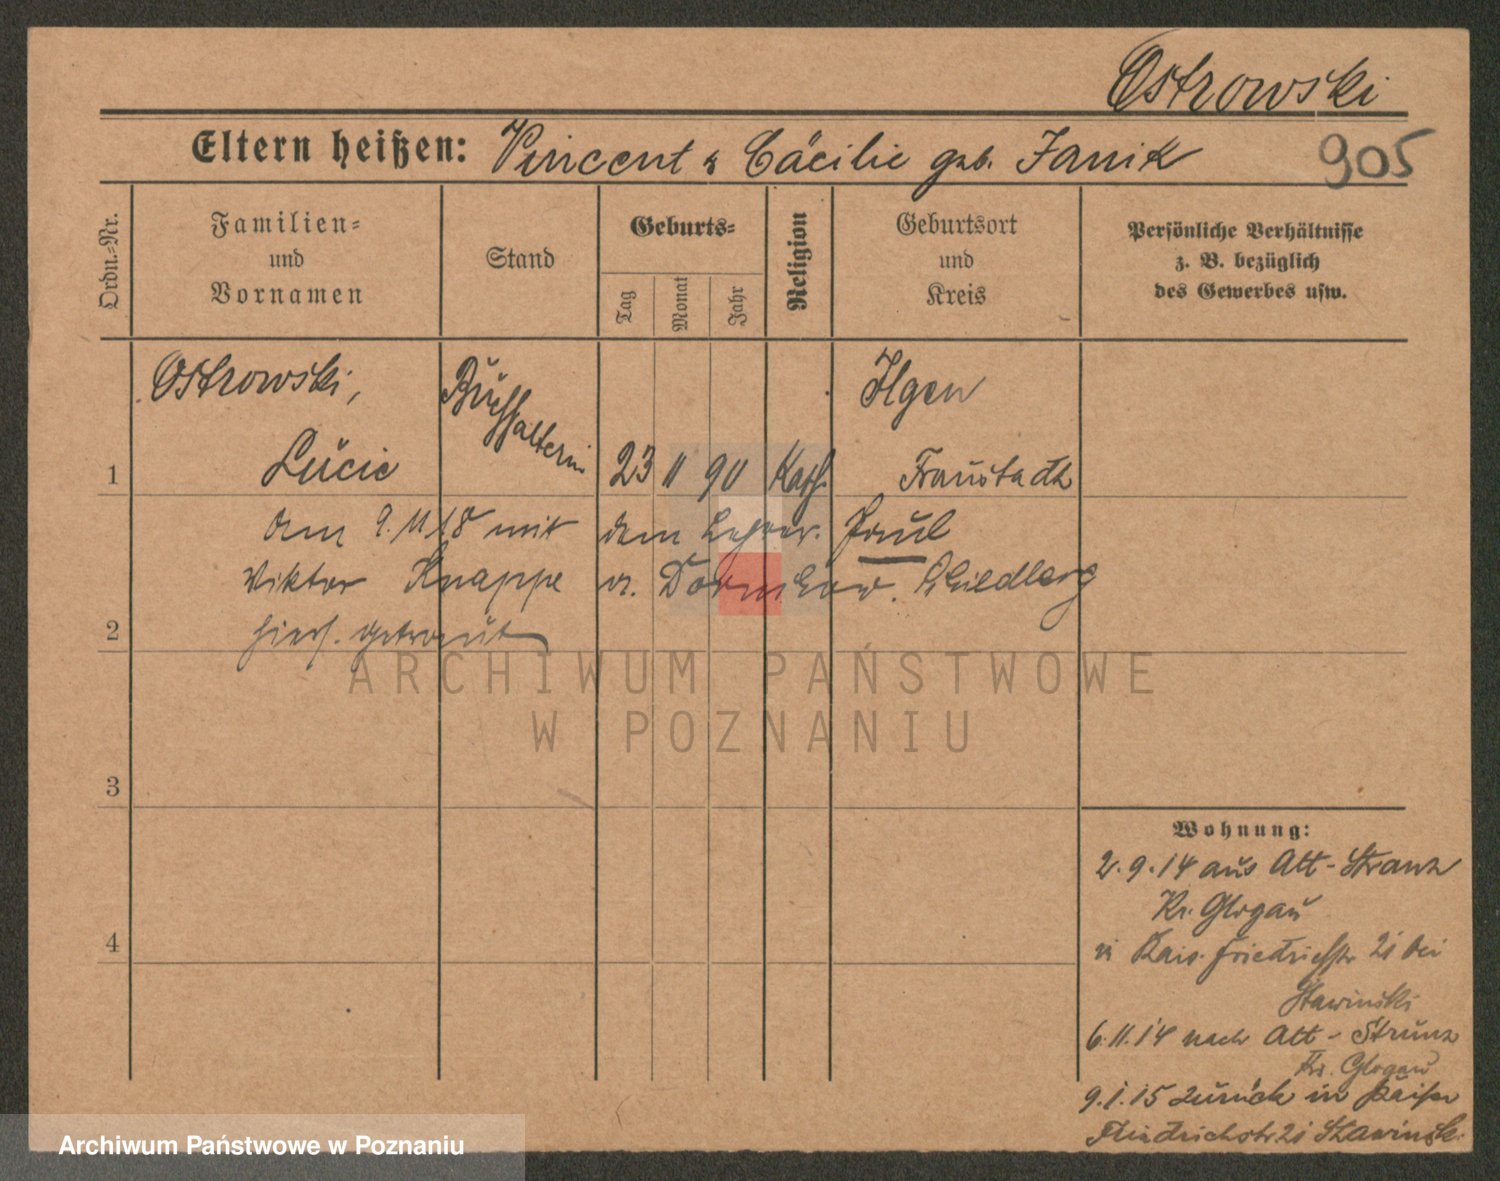 Ostrowski
Eltern heißen: Vincent & Cäcilie geb. Janik
905
Ordn.-Nr.
Familien-
und
Vornamen
Stand
Geburts-
Tag
Monat
Jahr
Religion
Geburtsort
und
Kreis
Persönliche Verhältnisse
z. B. bezüglich
des Gewerbes usw.
Ostrowski,
Buchhalterin
Ilgen
1
Lucie
23 11 90 Kath.
Fraustadt
am 9.11.18 mit dem Lehrer Paul
Viktor Knappe a.
2
hier. getraut
ARCHIWUM PAŃSTWOWE
W POZNANIU
3
4
Wohnung:
2.9.14 aus Alt-Stranz
Kr. Glogau
in Kais. Friedrichstr 21 bei
Stawinski
6.11.14 nach Alt-Strunz
Kr. Glogau
9.1.15 zurück in Kaiser
Friedrichstr 21 Stawinski
Archiwum Państwowe w Poznaniu